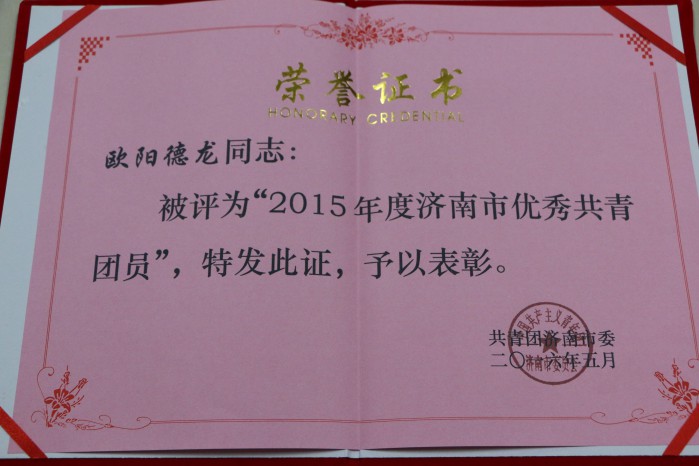 荣誉证书
HONORARY CREDENTIAL
欧阳德龙同志：
被评为“2015年度济南市优秀共青
团员”，特发此证，予以表彰。
共青团济南市委
二〇一六年五月
济南市委员会